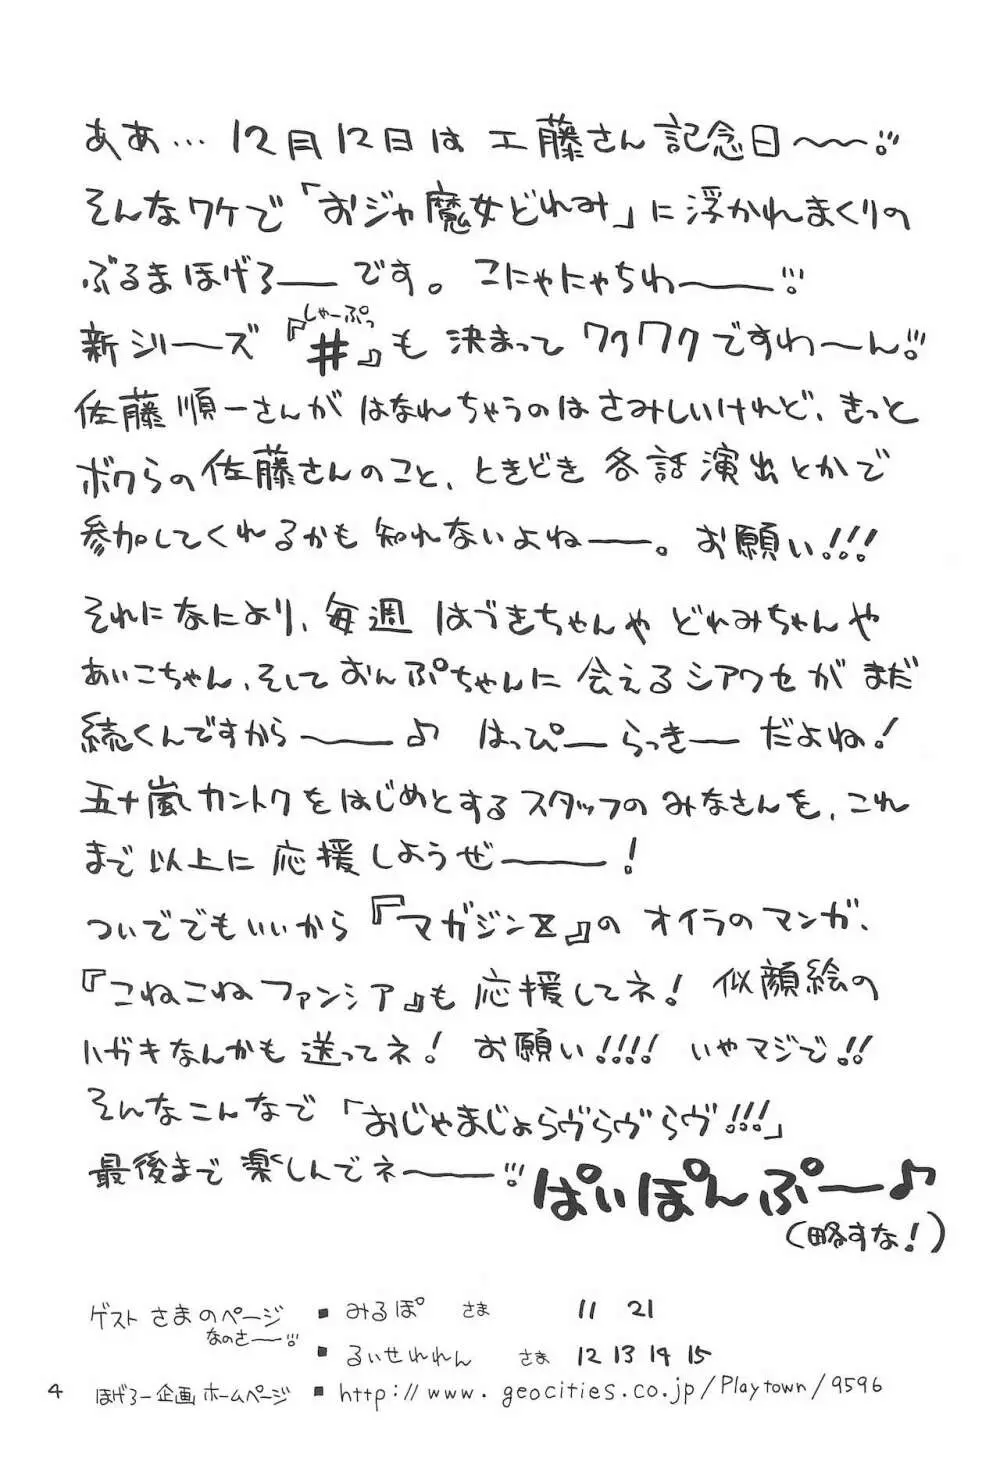 ああ… 12月12日は 工藤さん 記念日〜〜!!
そんなワケで「おジャ魔女どれみ」に浮かれまくりの
ぶるまほげろー です。 こにゃにゃちわー!!
しゃーぷっ
新シリーズ『#』も 決まって ワクワクですわーん!!
佐藤順一さんが はなれちゃうのは さみしいけれど、きっと
ボクらの佐藤さんのこと、ときどき 各話演出とかで
参加してくれるかも 知れないよねー。 お願い!!!
それになにより、毎週 はづきちゃんや どれみちゃんや
あいこちゃん、そして おんぷちゃんに 会えるシアワセが まだ
続くんですからー♪ はっぴー らっきー だよね!
五十嵐カントクをはじめとするスタッフの みなさんを、これ
まで以上に 応援しようぜー!
ついででもいいから『マガジンZ』の オイラのマンガ、
『こねこねファンシア』も 応援してネ! 似顔絵の
ハガキなんかも 送ってネ! お願い!!!! いやマジで!!
そんなこんなで「おじゃまじょらヴらヴらヴ!!!」
最後まで 楽しんでネー!! ぱいぽんぷー♪
(略すな!)
ゲスト さまのページ ■ みるぽ さま 11 21
なのさー!!
■ るいせれれん さま 12 13 14 15
4 ほげろー企画 ホームページ ■ http://www.geocities.co.jp/Playtown/9596